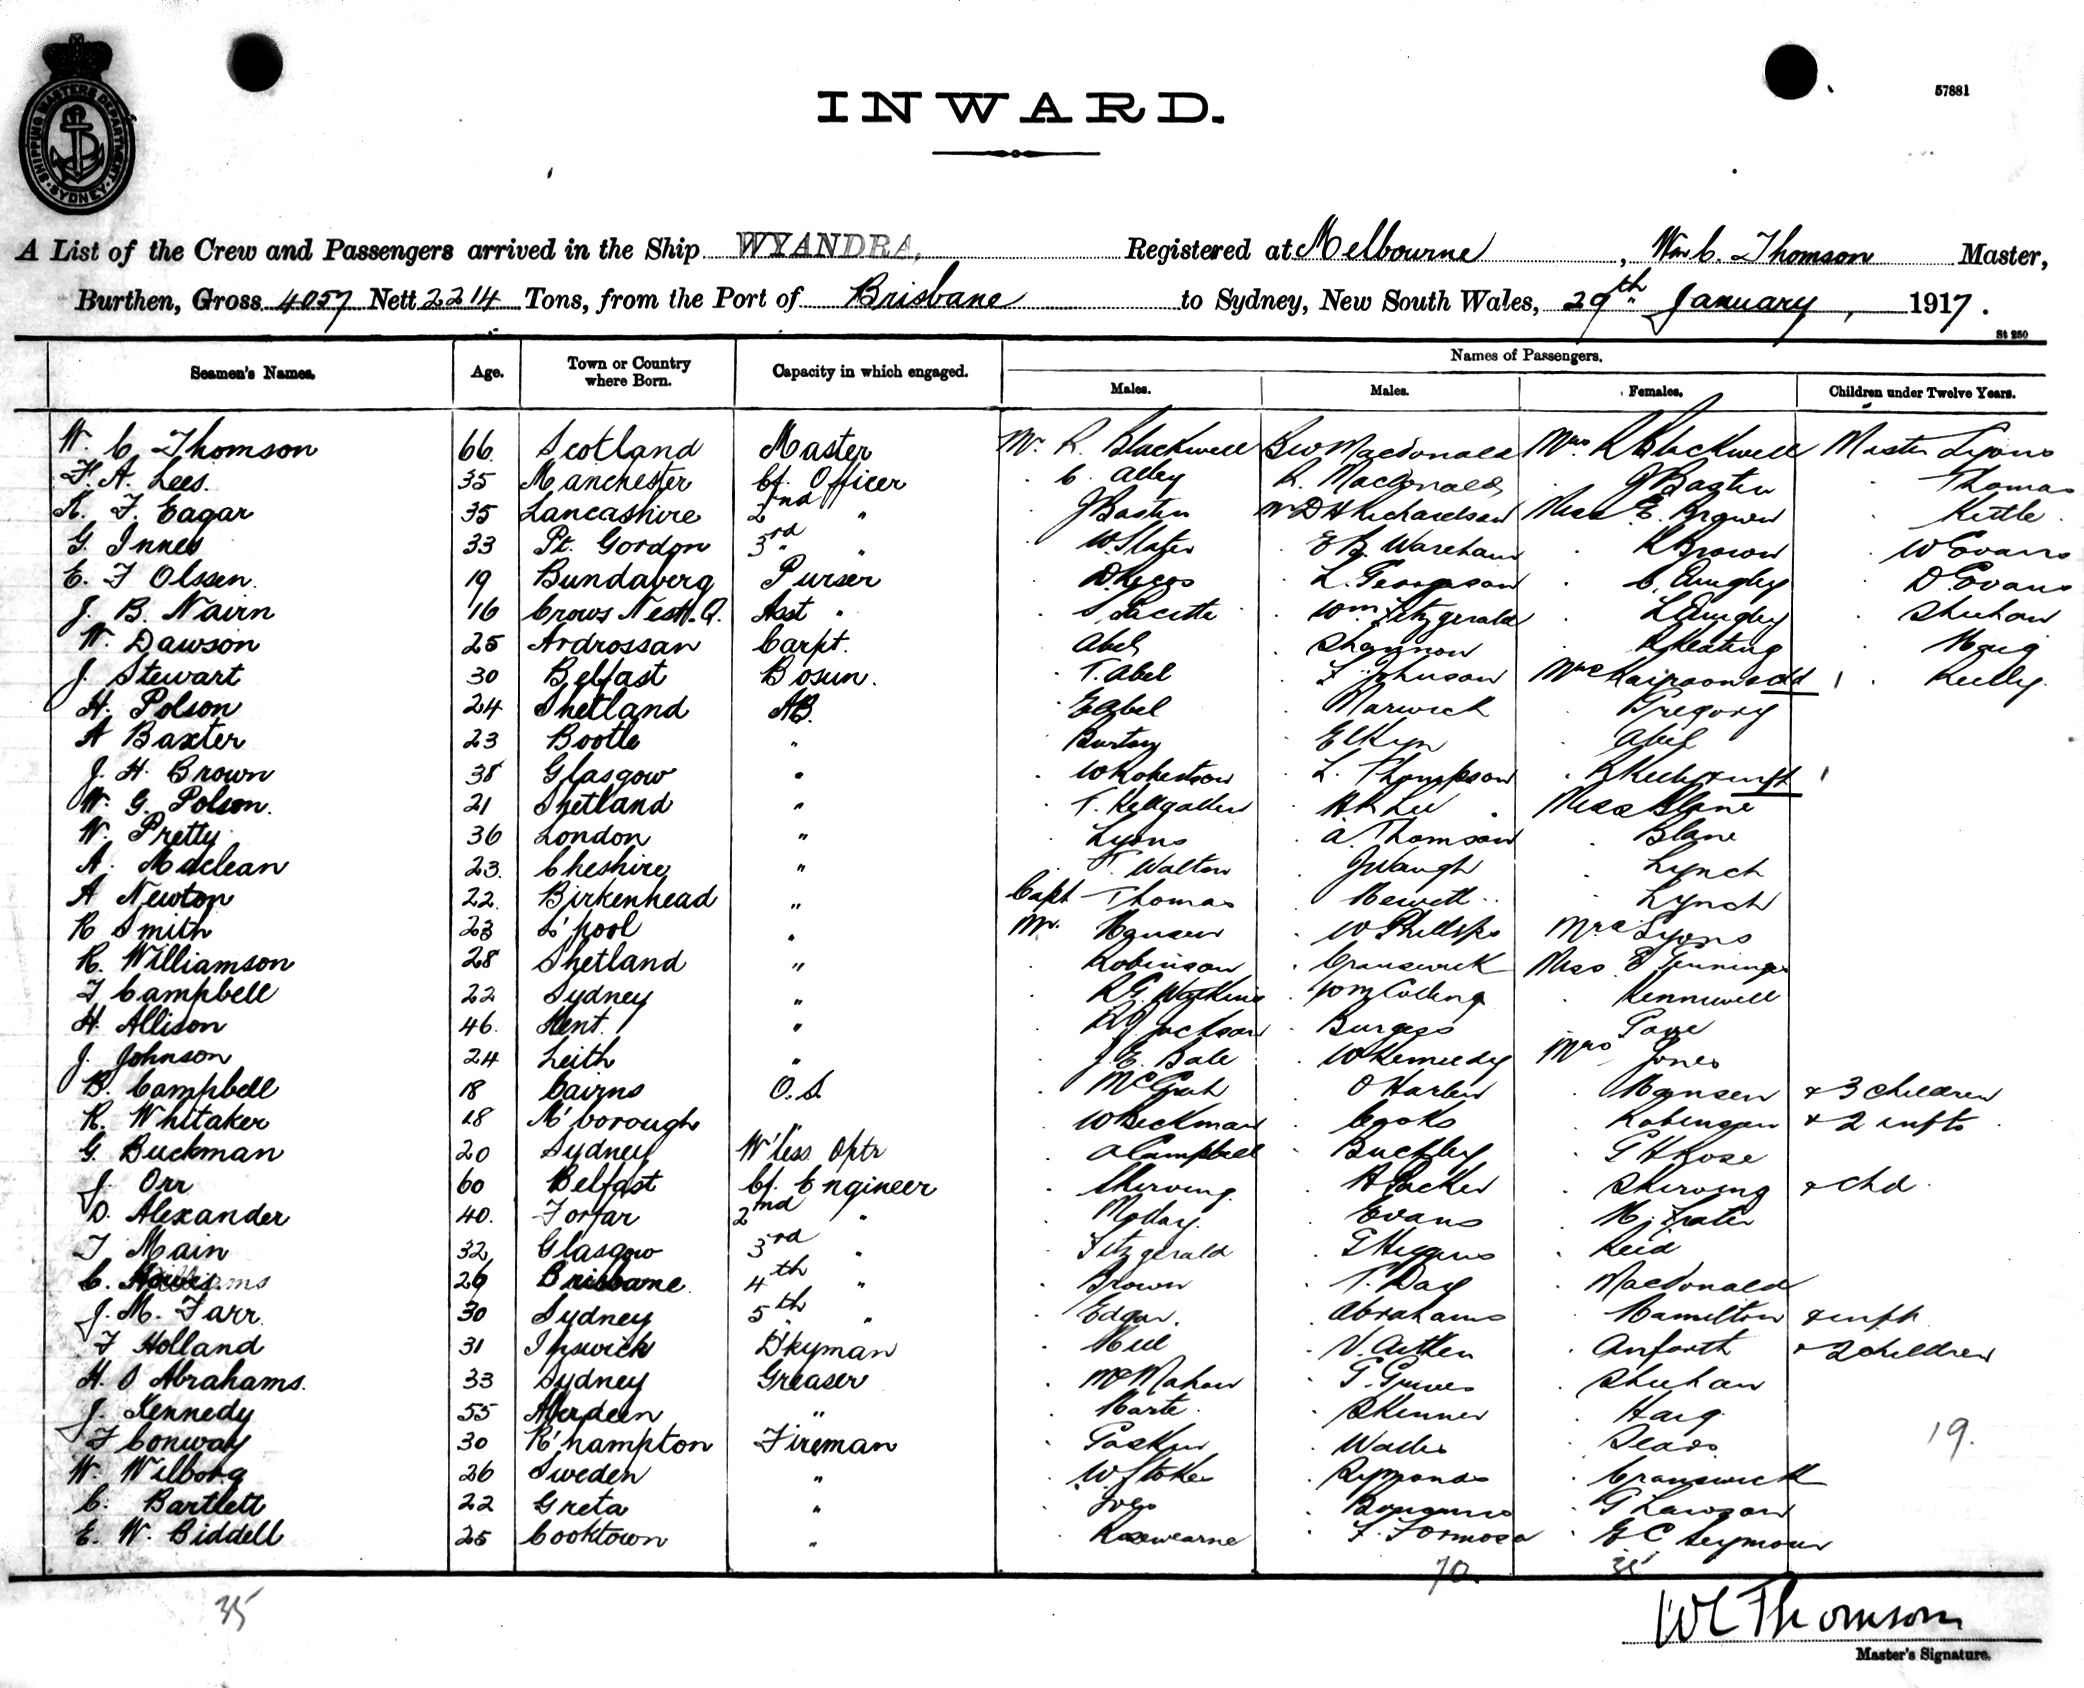 SHIPPING MASTERS DEPARTMENT SYDNEY
57881
INWARD.
A List of the Crew and Passengers arrived in the Ship WYANDRA, Registered at Melbourne, Wm C. Thomson Master,
Burthen, Gross 4057 Nett 2214 Tons, from the Port of Brisbane to Sydney, New South Wales, 29th January, 1917.
St 250
Seamen's Names. Age. Town or Country where Born. Capacity in which engaged. Names of Passengers.
Males. Males. Females. Children under Twelve Years.
W. C Thomson 66 Scotland Master Mr. R. Blackwell BW MacDonald Mrs R Blackwell Master Lyons
F. A. Lees. 35 Manchester Cf. Officer C. Alley R. MacDonald J Bastin Thomas
R. F. Eagar 35 Lancashire 2nd " J Bastin W D H Richardson Miss E. Brown Kettle
G. Innes 33 Pt. Gordon 3rd " W. Slater E R. Wareham R Brown W Evans
E. F Olssen 19 Bundaberg Purser L. Fergusson D Evans
J. B. Nairn 16 Crows Nest. Q. Asst " Wm. Fitzgerald Sheehan
W. Dawson 25 Ardrossan Carpt. Abel Shannon R Keating Haig
J. Stewart 30 Belfast Bosun. T. Abel F. Johnson Mrs 1 Reilly
H. Polson 24 Shetland AB. E Abel Marwick Gregory
A Baxter 23 Bootle " Burton Abel
J. H. Brown 38 Glasgow " W Robertson L. Thompson & inft 1
W. G. Polson. 21 Shetland " R R Lee Miss Blane
W. Pretty 36 London " Lyons A. Thomson Blane
A. Maclean 23. Cheshire " F. Walton J Waugh Lynch
A Newton 22. Birkenhead " Capt Thomas Hewett Lynch
R Smith 23 L'pool " Mr. Hansen W Phillips Mrs Lyons
R. Williamson 28 Shetland " Robinson Cranswick Miss E Jennings
F Campbell 22 Sydney " R G. Watkins Wm Colling Kenniwell
H. Allison 46. Kent. " R J. Jackson Burgess Page
J. Johnson 24 Leith " J. E. Bale W Kennedy Mrs Jones
B. Campbell 18 Cairns O.S. McGrath O Harlen Hansen & 3 children
R. Whitaker 18 M'borough " W Beckman Cooks Robinson & 2 infts
G. Buckman 20 Sydney W'less Optr A Campbell Buckley G H Rose
J. Orr 60 Belfast Cf. Engineer Skirving H Packer Skirving & chd.
D. Alexander 40. Forfar 2nd " Evans M. Frater
F Main 32 Glasgow 3rd " Fitzgerald G Higgins Reid
C. Williams 26 Brisbane 4th " Brown T. Day MacDonald
J. M. Farr. 30 Sydney 5th " Edgar. Abrahams Hamilton & inft
F Holland 31 Ipswich Dkyman V. Aitken Anforth & 2 children
H. S Abrahams. 33 Sydney Greaser McMahon Sheehan
J. Kennedy 55 Aberdeen " Harte. Skinner Haig
F Conway 30 R'hampton Fireman
W. Wilborg 26 Sweden " W. Stoker Symonds Cranswick
C. Bartlett 22 Greta " G Lawson
E. W. Biddell 25 Cooktown " Rosewearne F. Formosa G C Seymour
19.
35 70. 35
WC Thomson
Master's Signature.